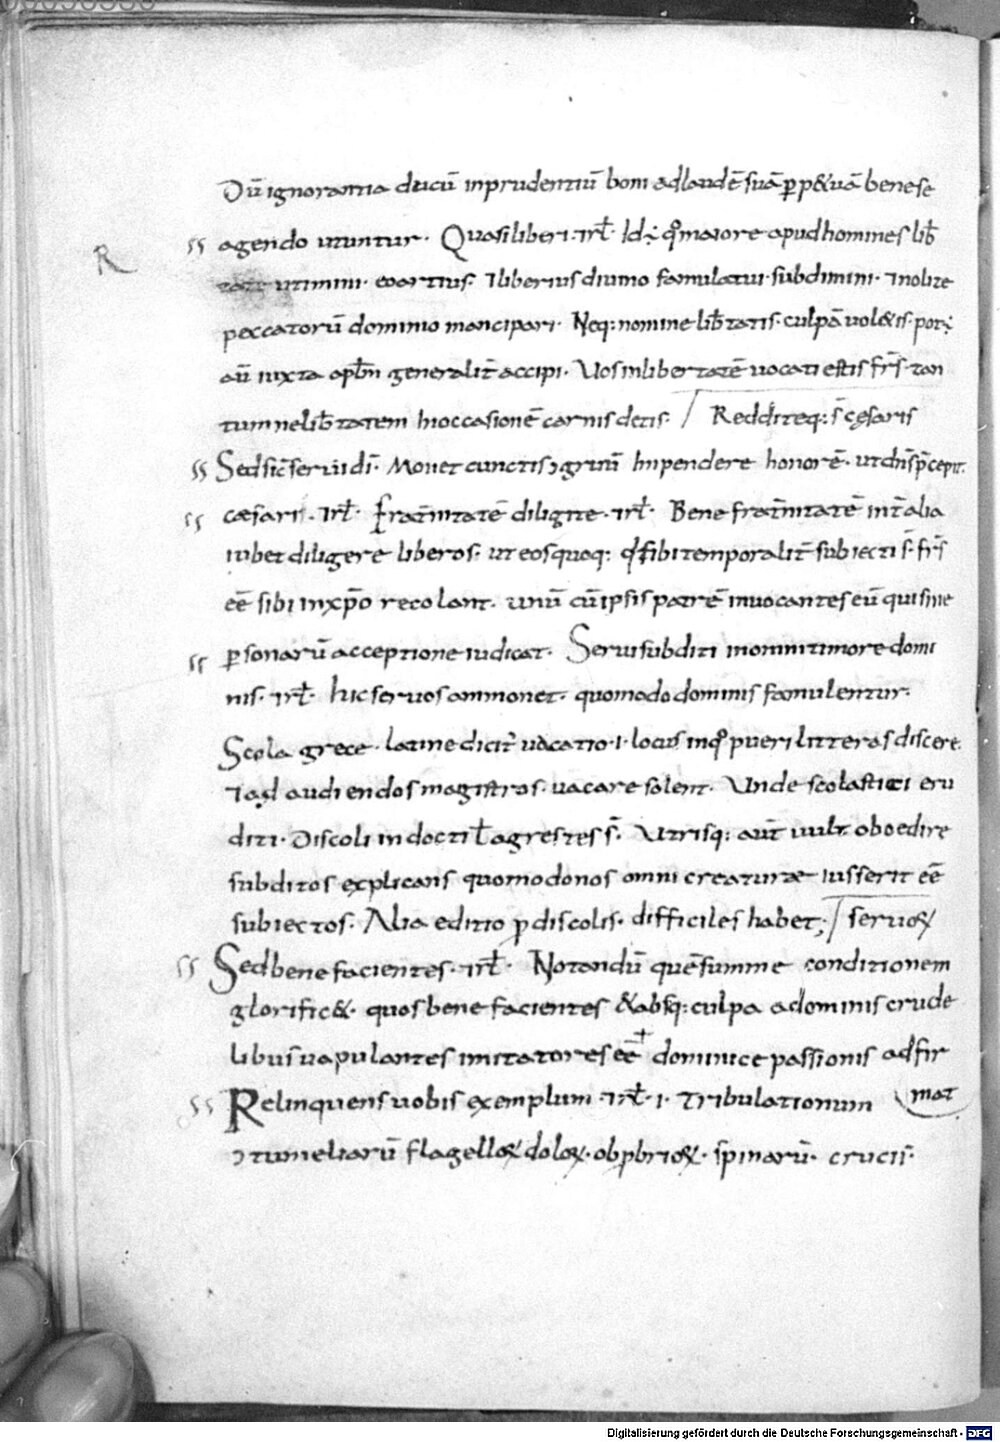 Dū ignorantia ducū inprudentiū boni adlaudē suā ꝑp&uā bene se
agendo utuntur. Quasi liberi. rł. Id ÷ qđ maiore apud homines lib̄
tate utimini. euartius. ⁊ liberius diuino famulatui subdimini. ⁊ nolite
peccatorū dominio mancipari. Neq: nomine lib̄tatis culpā uol&is.
aū iuxta apłm generalit̄ accipi. Uos in libertatē uocati estis fr̄s tan
tum ne lib̄tatem hi occasionē carnis detis. / Redditeq: s̄ cęsaris
R
ss
ss Sed sic̄ serui dī. Monet cunctis ɔgruū impendere honorē. ut dn̄s p̄cepit.
ss cæsari. rł. Frat̄nitatē diligite. rł. Bene frat̄nitatē int̄ alia
iubet diligere liberos. ut eos quoq: q̄ sibi temporalit̄ subiecti s̄. fr̄s
eē sibi inxp̄o recolant. unū cū ipsis patrē inuocantes eū qui sine
ꝑsonarū acceptione iudicat. Serui subditi in omni timore domi
ss nis. rł. hic seruos ammonet. quomodo dominis famulentur.
Scola grece. latine dicit̄ uacatio .i. locus inqđ pueri litteras discere.
⁊ ad audiendos magistros. uacare solent. Unde scolastici eru
diti. Discoli indocti ł agrestes s̄. Utrisq: aut̄ uult oboedire
subditos explicans quomodo nos omni creaturæ iusserit eē
subiectos. Alia editio ꝓ discolis. difficiles habet; / seruoꝝ
ss Sed bene facientes. rł. Notandū quē summe conditionem
glorific&. quos bene facientes & absq: culpa a dominis crude
libus uapulantes imitatores eē dominice passionis adfir
mat
ss Relinquens uobis exemplum. rł. i. tribulationum
ɔtumeliarū flagelloꝝ doloꝝ. obꝓbrioꝝ. spinarū. crucis.
Digitalisierung gefördert durch die Deutsche Forschungsgemeinschaft - DFG